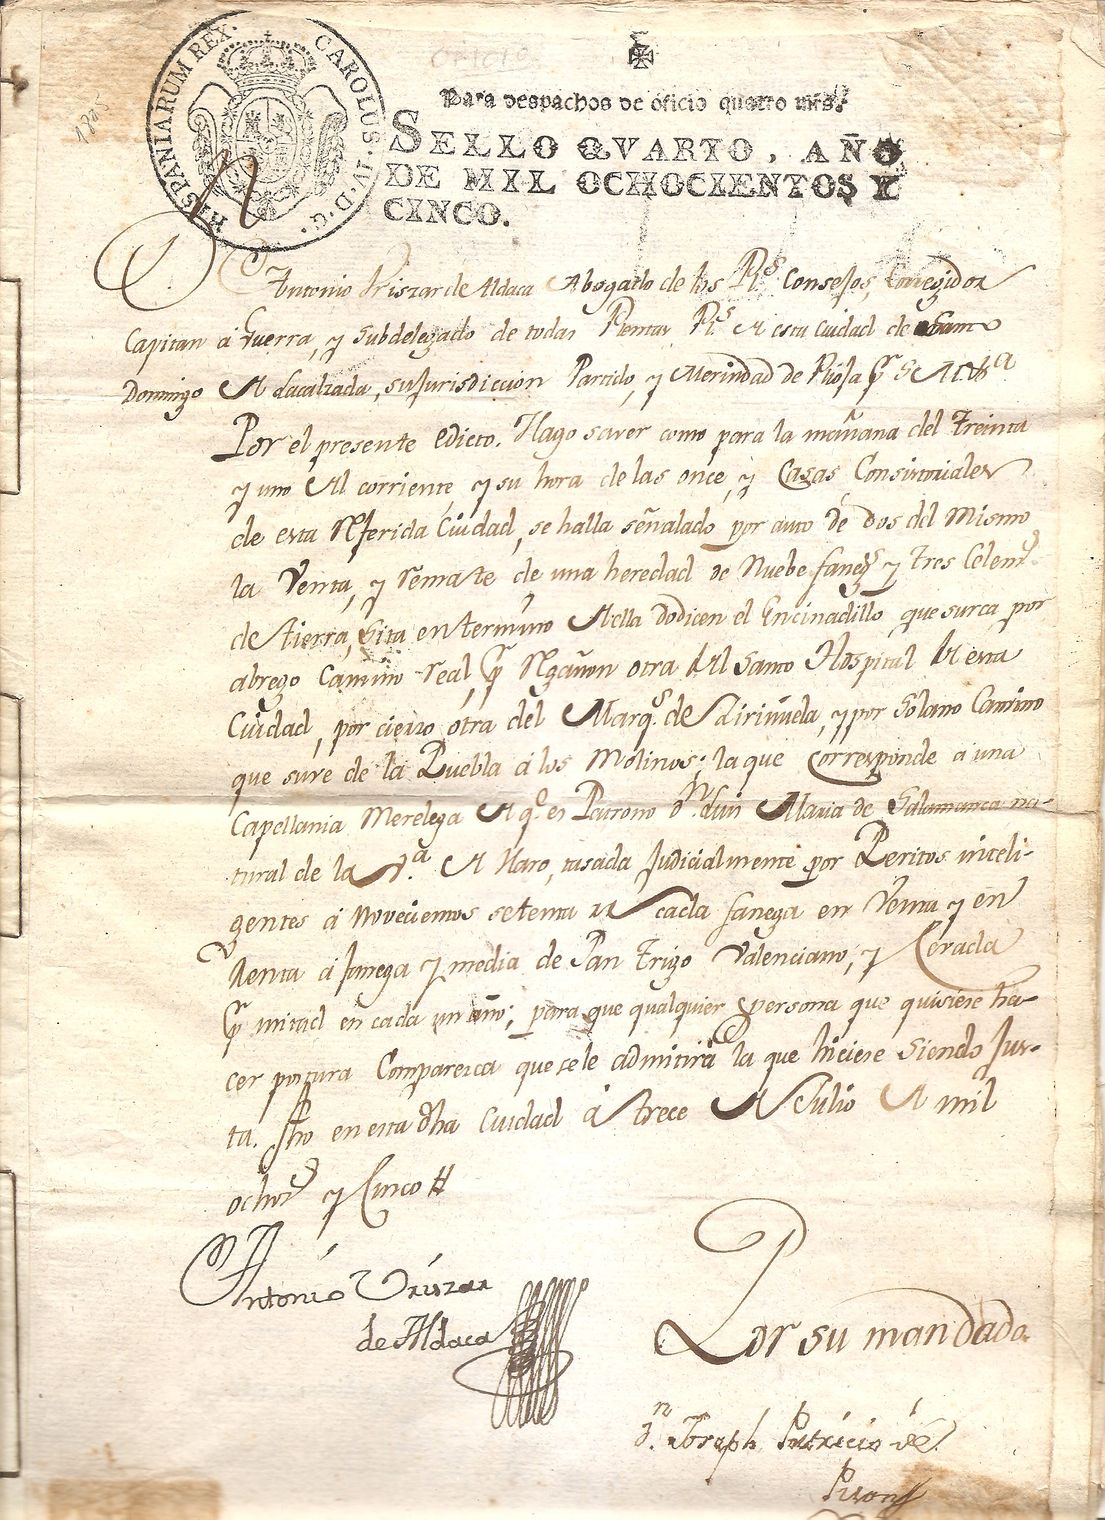 HISPANIARUM REX. CAROLUS. IV. D. G.
1805
OFICIO
Para despachos de oficio quatro mrs.
SELLO QVARTO, AÑO
DE MIL OCHOCIENTOS Y
CINCO.
Antonio Urizar de Aldaca Abogado de los Rs. Consejos, Corregidor
Capitan á Guerra, y Subdelegado de todas Rentas Rs. de esta Ciudad de Santo
Domingo de Lacalzada, su Jurisdiccion Partido, y Merindad de Rioja
Por el presente edicto. Hago saver como para la mañana del treinta
y uno del corriente, y su hora de las once, y Casas Consistoriales
de esta referida Ciudad, se halla señalado por auto de dos del Mismo
la Venta, y remate de una heredad de Nuebe faneg.s y tres Celem.s
de tierra, Sita en termino de ella do dicen el Encinadillo que surca por
abrego Camino real, otra del Santo Hospital de esta
Ciudad, por cierzo otra del Marq.s de Ciriñuela, y por Solano Camino
que sure de la Puebla á los Molinos; la que Corresponde a una
Capellania Merelega de q.e es Patrono D.n Luis Maria de Salamanca na-
tural de la V.a de Haro, tasada Judicialmente por Peritos inteli-
gentes á novecientos setenta cada fanega en Venta y en
Renta á fanega y media de Pan trigo Valenciano, y Cevada
mitad en cada un año; para que qualquier persona que quisiese ha-
cer postura Comparezca que se le admitirá la que hiciese siendo Jus-
ta. fho en esta dha Ciudad á trece de Julio de mil
ochos y Cinco
Antonio Urizar
de Aldaca
Por su mandado
D.n Joseph Patricio de